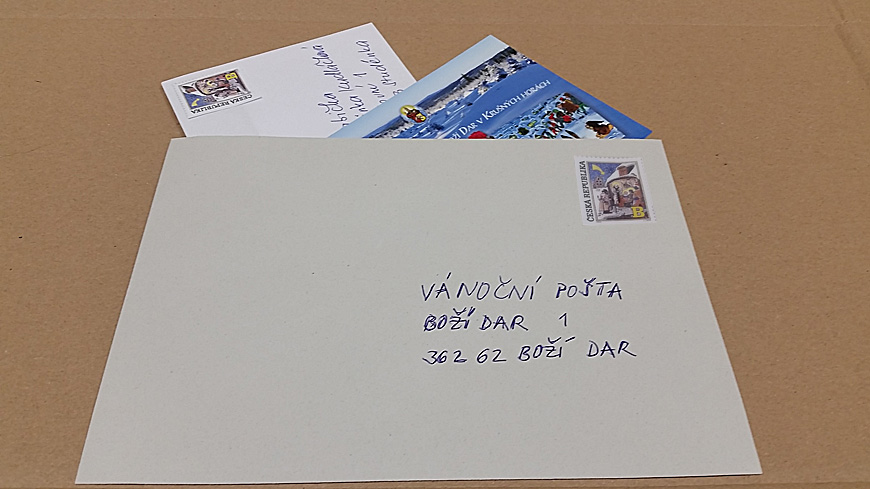 ČESKÁ REPUBLIKA
Kudláčková
1
DAR V KRUŠNÝCH HORÁCH
ČESKÁ REPUBLIKA
VÁNOČNÍ POŠTA
BOŽÍ DAR 1
362 62 BOŽÍ DAR